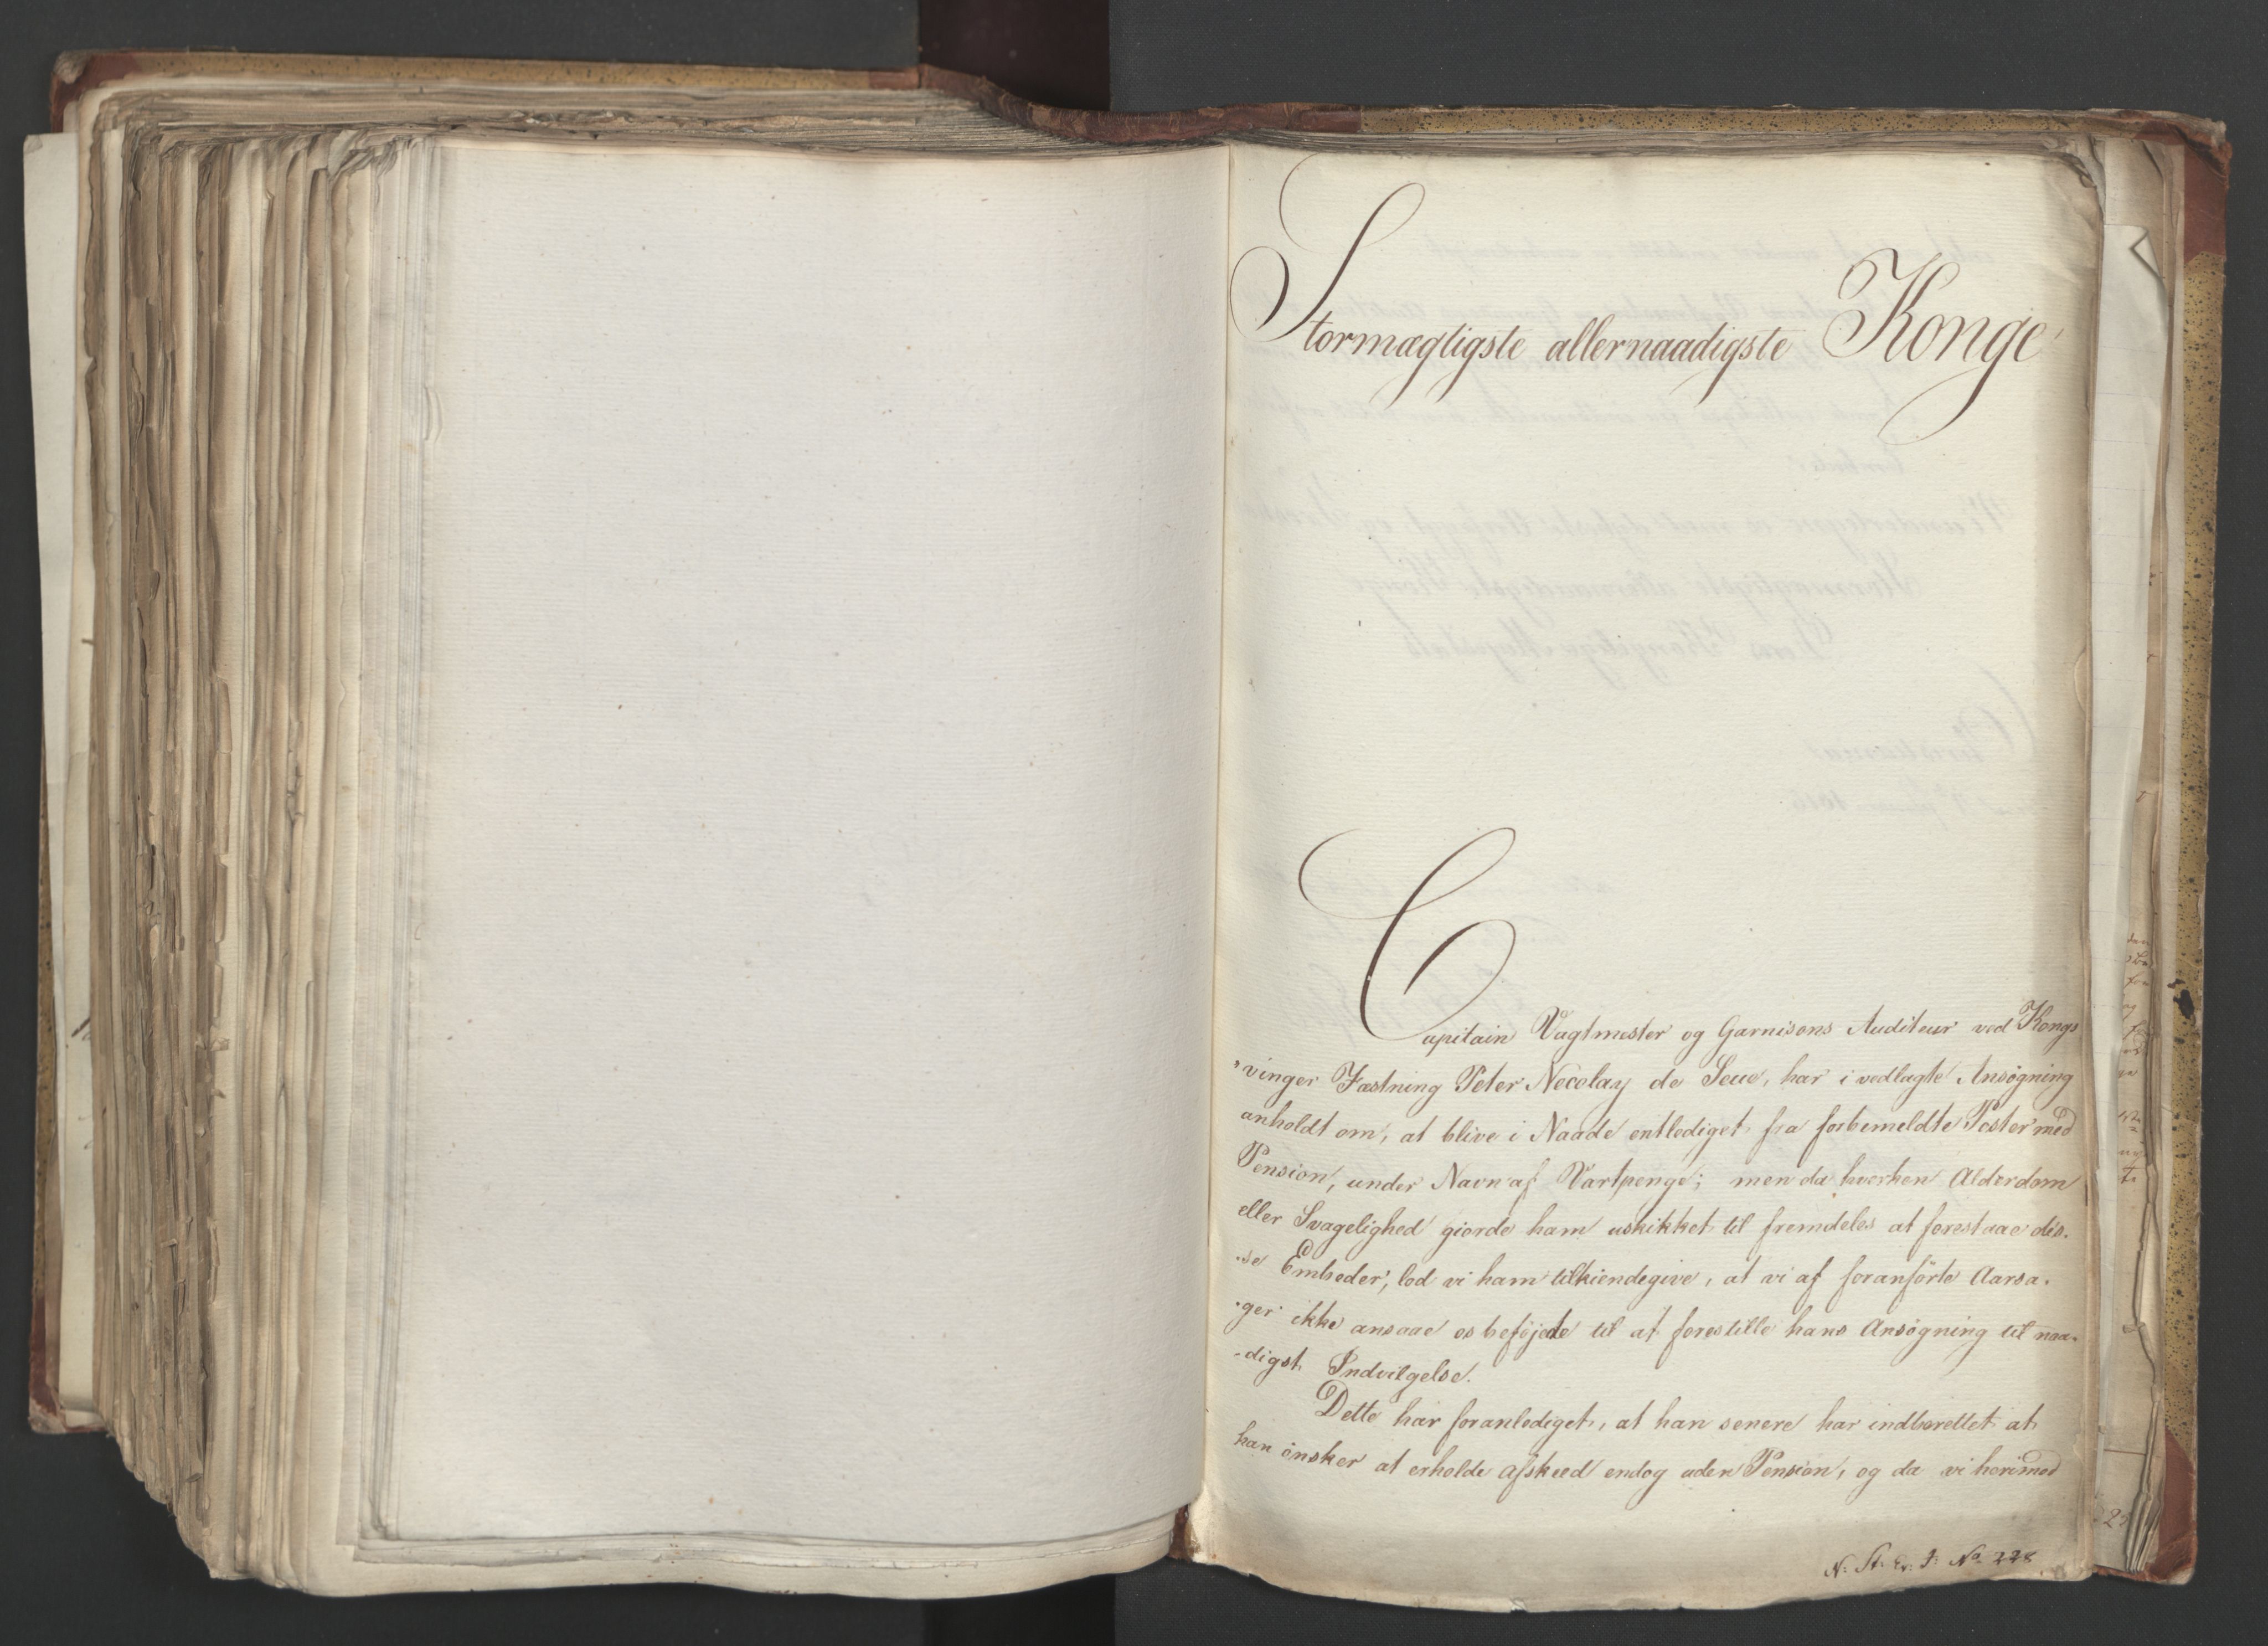 Stormægtigste allernaadigste Konge
Capitain Vagtmester og Garnisons Auditeur ved Kongs
"vinger Fæstning Peter Necolay de Seue, har i vedlagte Ansøgning
anholdt om, at blive i Naade entlediget fra forbemeldte Poster med
Pension, under Navn af Vartpenge; men da hverken Alderdom
eller Svagelighed giorde ham uskikket til fremdeles at forestaae dis-
-se Embeder, lod vi ham tilkiendegive, at vi af foranførte Aarsa-
-ger ikke ansaae os beføjede til at forestille hans Ansøgning til naa-
-digst Indvilgelse.
Dette har foranlediget, at han senere har indberettet at
han ønsker at erholde Afskeed endog uden Pension, og da vi herimod
N: St. Ex. J: No 228